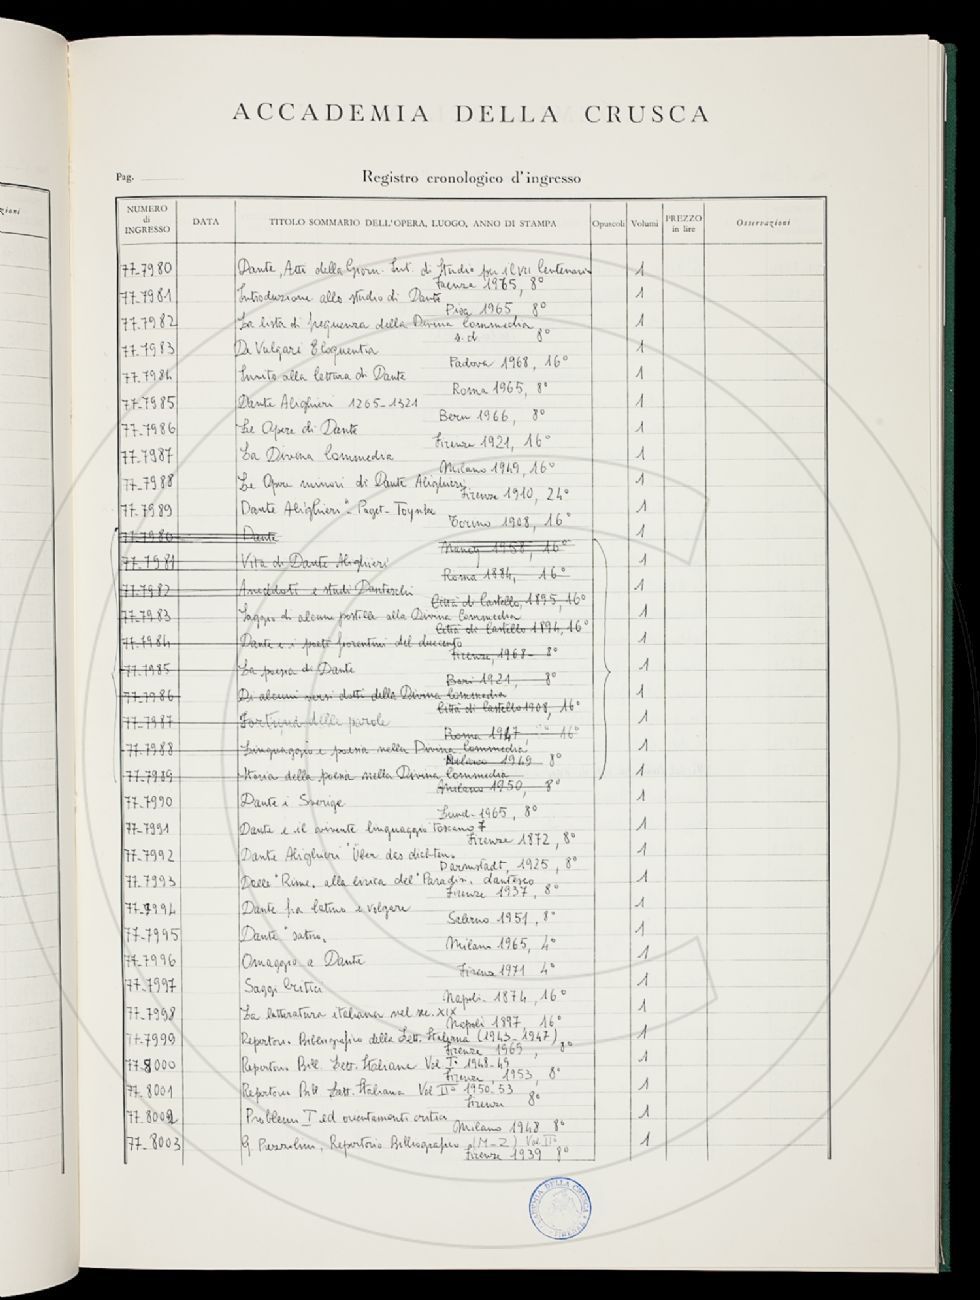 zioni
ACCADEMIA DELLA CRUSCA
Pag.
Registro cronologico d'ingresso
NUMERO di INGRESSO DATA TITOLO SOMMARIO DELL'OPERA, LUOGO, ANNO DI STAMPA Opuscoli Volumi PREZZO in lire Osservazioni
77-7980 Dante, Atti della Giorn. Int. di Studio per il VII Centenario 1
Faenza 1965, 8°
77-7981 Introduzione allo studio di Dante 1
Pisa 1965, 8°
77-7982 La lista di frequenza della Divina Commedia 1
s.d. 8°
77-7983 De Vulgari Eloquentia 1
Padova 1968, 16°
77-7984 Invito alla lettura di Dante 1
Roma 1965, 8°
77-7985 Dante Alighieri 1265-1321 1
Bern 1966, 8°
77-7986 Le Opere di Dante 1
Firenze 1921, 16°
77-7987 La Divina Commedia 1
Milano 1949, 16°
77-7988 Le Opere minori di Dante Alighieri 1
Firenze 1910, 24°
77-7989 Dante Alighieri - Paget-Toynbe 1
Torino 1908, 16°
77-7980 Dante 1
Nancy 1958, 16°
77-7981 Vita di Dante Alighieri 1
Roma 1884, 16°
77-7982 Aneddoti e studi Danteschi 1
Città di Castello, 1895, 16°
77-7983 Saggio di alcune postille alla Divina Commedia 1
Città di Castello 1894, 16°
77-7984 Dante e i poeti fiorentini del duecento 1
Firenze, 1968- 8°
77-7985 La poesia di Dante 1
Bari 1921, 8°
77-7986 Di alcuni versi dotti della Divina Commedia 1
Città di Castello 1908, 16°
77-7987 Fortuna delle parole 1
Roma 1947, 16°
77-7988 Linguaggio e poesia nella Divina Commedia 1
Milano 1949 8°
77-7989 Storia della poesia nella Divina Commedia 1
Milano 1950, 8°
77-7990 Dante i Sverige 1
Lund-1965, 8°
77-7991 Dante e il vivente linguaggio toscano 1
Firenze 1872, 8°
77-7992 Dante Alighieri "Über das dichten. 1
Darmstadt, 1925, 8°
77-7993 Dalle "Rime. alla lirica del "Paradis. dantesco 1
Firenze 1937, 8°
77-7994 Dante fra latino e volgare 1
Salerno 1951, 8°
77-7995 Dante 1
Milano 1965, 4°
77-7996 Omaggio a Dante 1
1971 4°
77-7997 Saggi Critici 1
Napoli- 1874, 16°
77-7998 La letteratura italiana nel sec. XIX 1
Napoli 1897, 16°
77-7999 Repertorio Bibliografico della Lett. Italiana (1943-1947) 1
Firenze 1969, 8°
77-8000 Repertorio Bibl. Lett. Italiana Vol. I° 1948-49 1
Firenze, 1953, 8°
77-8001 Repertorio Bibl Lett. Italiana Vol II° 1950-53 1
Firenze 8°
77-8002 Problemi ed orientamenti critici 1
Milano 1948 8°
77-8003 G. Prezzolini, Repertorio Bibliografico (M-Z) Vol. II° 1
Firenze 1939 8°
ACCADEMIA DELLA CRUSCA FIRENZE